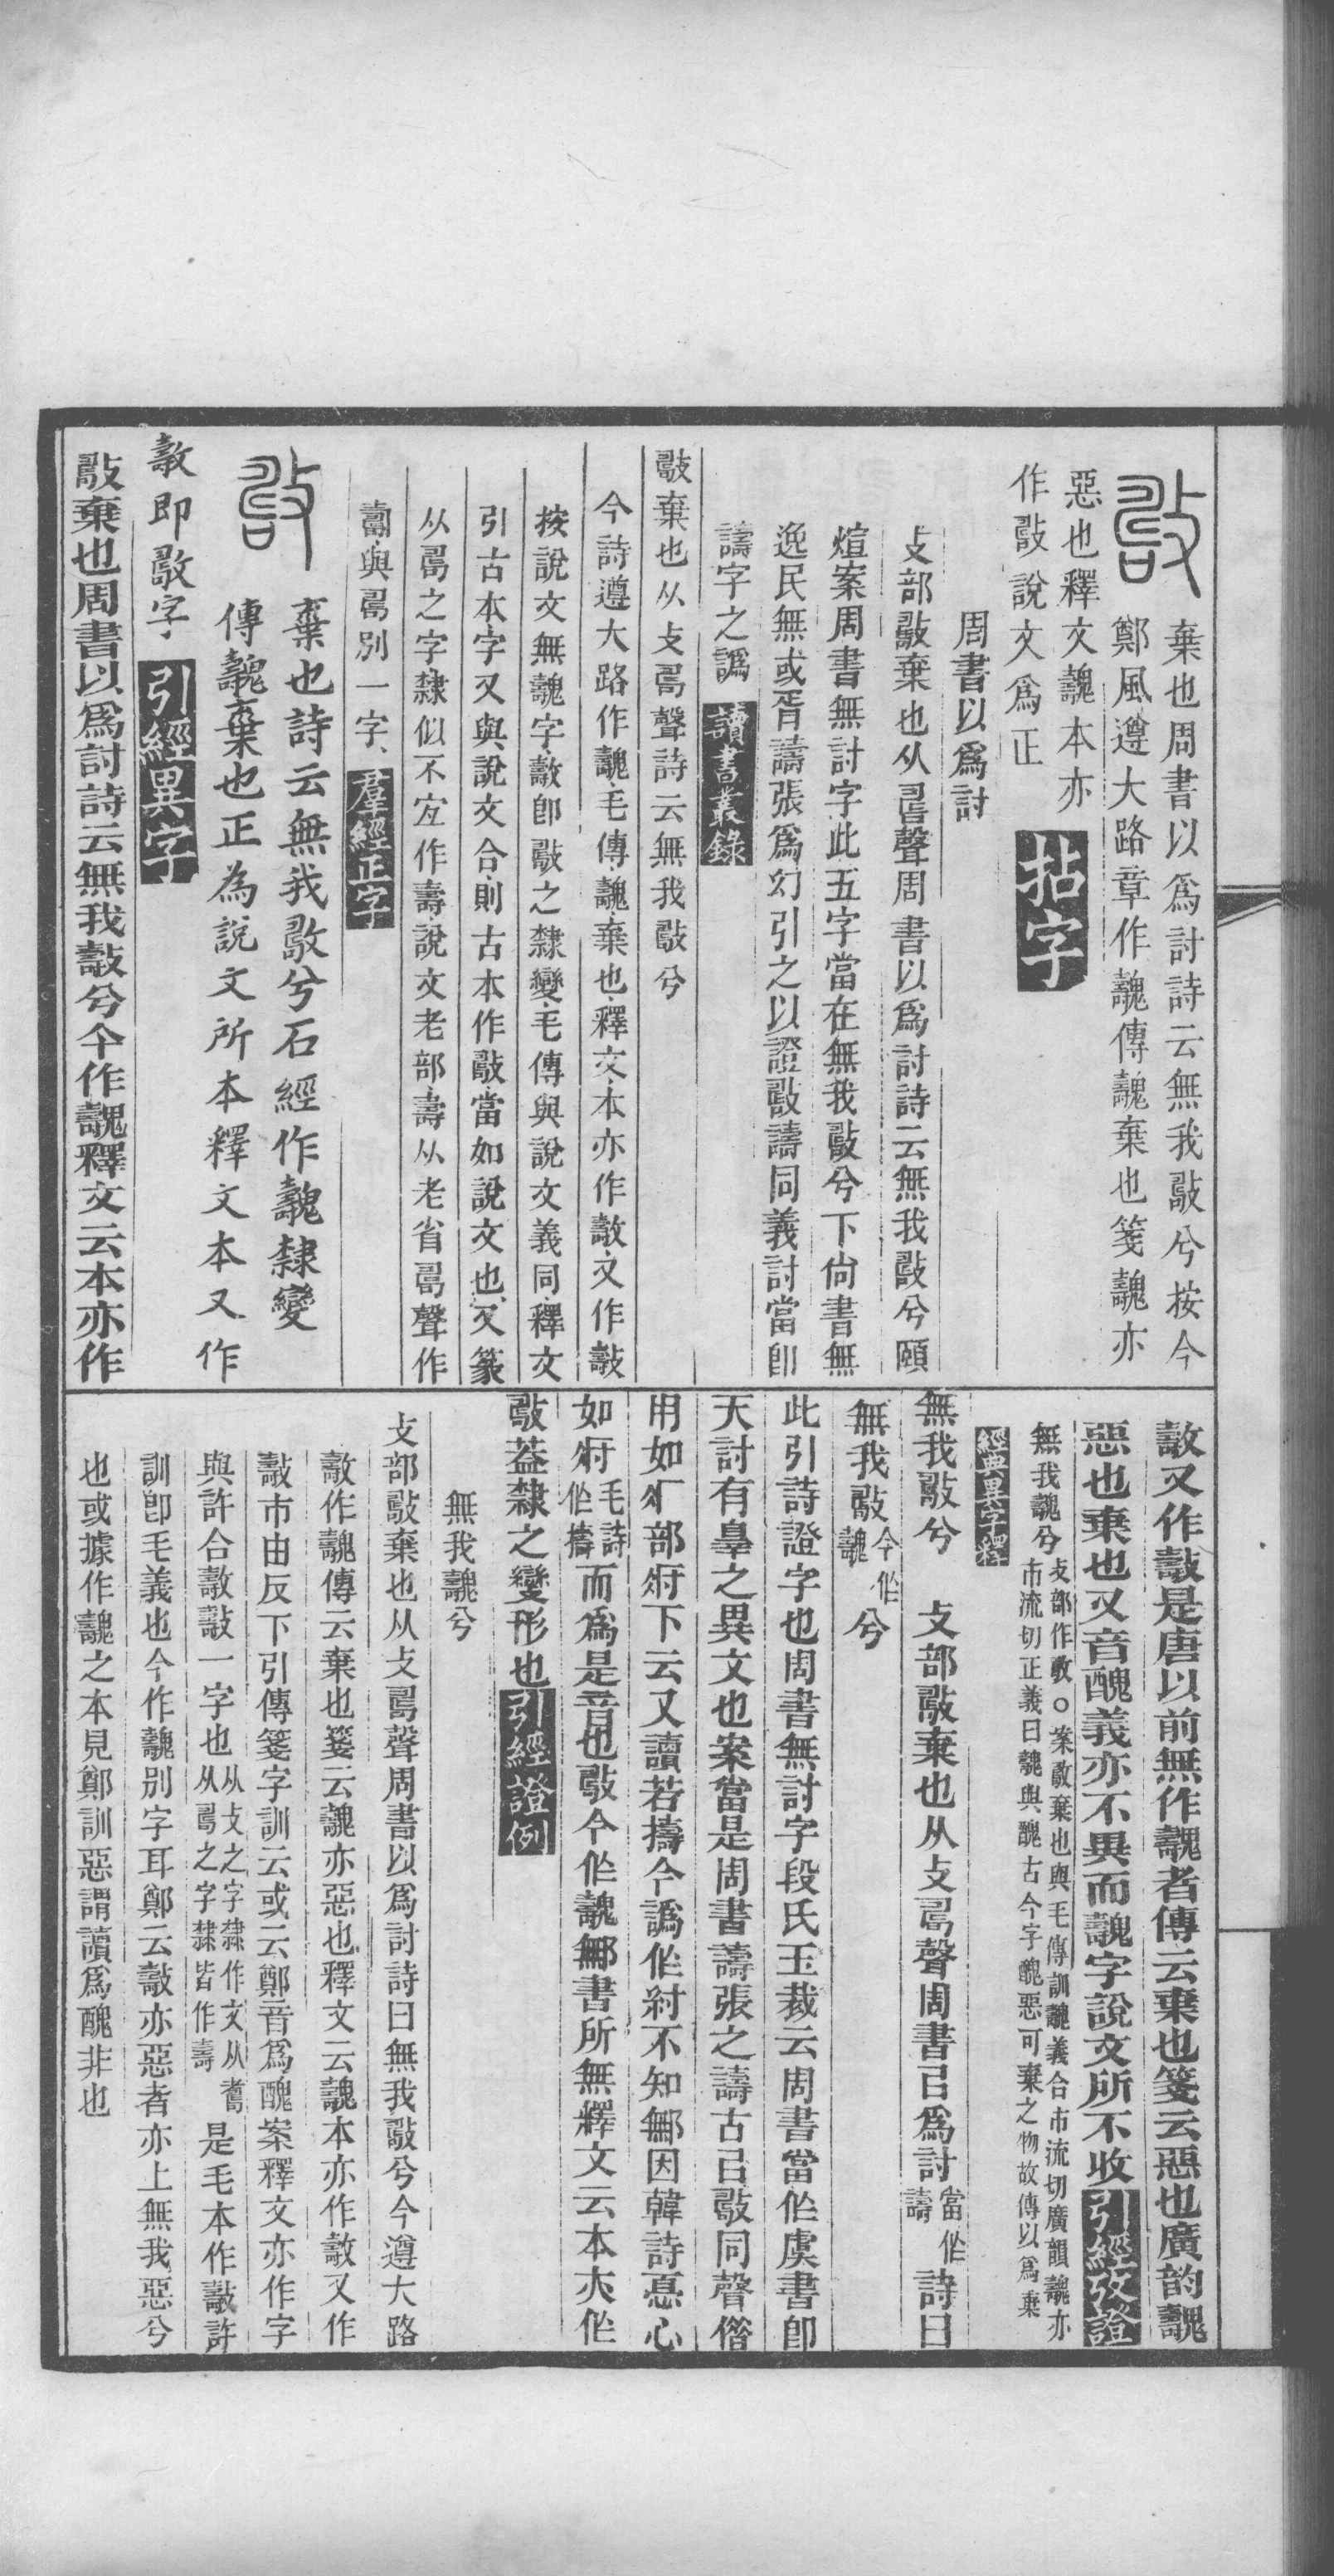 棄也周書以爲討詩云無我㪣兮按今
鄭風遵大路章作魗傳魗棄也箋魗亦
惡也釋文魗本亦
作㪣說文爲正
拈字
周書以爲討
攴部㪣棄也从𠷎聲周書以爲討詩云無我㪣兮頤
煊案周書無討字此五字當在無我㪣兮下尙書無
逸民無或胥譸張爲幻引之以證㪣譸同義討當卽
譸字之譌
讀書叢錄
㪣棄也从攴𠷎聲詩云無我㪣兮
今詩遵大路作魗毛傳魗棄也釋文本亦作𢾭又作𣀓
按說文無魗字𢾭卽㪣之隸變毛傳與說文義同釋文
引古本字又與說文合則古本作㪣當如說文也又篆
从𠷎之字隸似不宐作壽說文老部壽从老省𠷎聲作
與𠷎別一字
羣經正字
棄也詩云無我㪣兮石經作魗隸變
傳魗棄也正為說文所本釋文本又作
𢾭即㪣字
引經異字
㪣棄也周書以爲討詩云無我㪣兮今作魗釋文云本亦作
𢾭又作𣀓是唐以前無作魗者傳云棄也箋云惡也廣韵魗
惡也棄也又音醜義亦不異而魗字說文所不收
引經攷證
無我魗兮
攴部作㪣○案㪣棄也與毛傳訓魗義合市流切廣韻魗亦
市流切正義曰魗與醜古今字醜惡可棄之物故傳以爲棄
經典異字釋
無我㪣兮 攴部㪣棄也从攴𠷎聲周書㠯爲討當作譸詩曰
無我㪣今作魗兮
此引詩證字也周書無討字段氏玉裁云周書當作虞書卽
天討有辠之異文也案當是周書譸張之譸古㠯㪣同聲偺
用如疒部疛下云又讀若擣今譌作紂不知鄦因韓詩惪心
如疛毛詩作擣而爲是音也㪣今作魗鄦書所無釋文云本亦作
㪣葢隸之變形也
引經證例
無我魗兮
攴部㪣棄也从攴𠷎聲周書以爲討詩曰無我㪣兮今遵大路
𢾭作魗傳云棄也箋云魗亦惡也釋文云魗本亦作𢾭又作
𣀓市由反下引傳箋字訓云或云鄭音爲醜案釋文亦作字
與許合𢾭𣀓一字也从攴之字隸作文从𠷎之字隸皆作壽是毛本作𣀓許
訓卽毛義也今作魗別字耳鄭云𣀓亦惡者亦上無我惡兮
也或據作魗之本見鄭訓惡謂讀爲醜非也